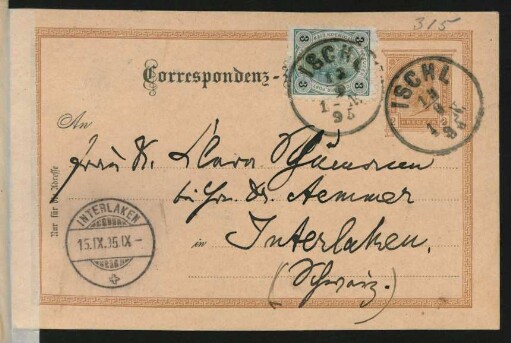 315
Correspondenz-
3 3
3 3
ISCHL
13
9
95
ISCHL
13
9
95
An
Frau Dr. Clara Schumann
bei Hrn. Dr. Aemmer
in Interlaken.
(Schweiz.)
Nur für die Adresse
INTERLAKEN
15.IX.95.IX-